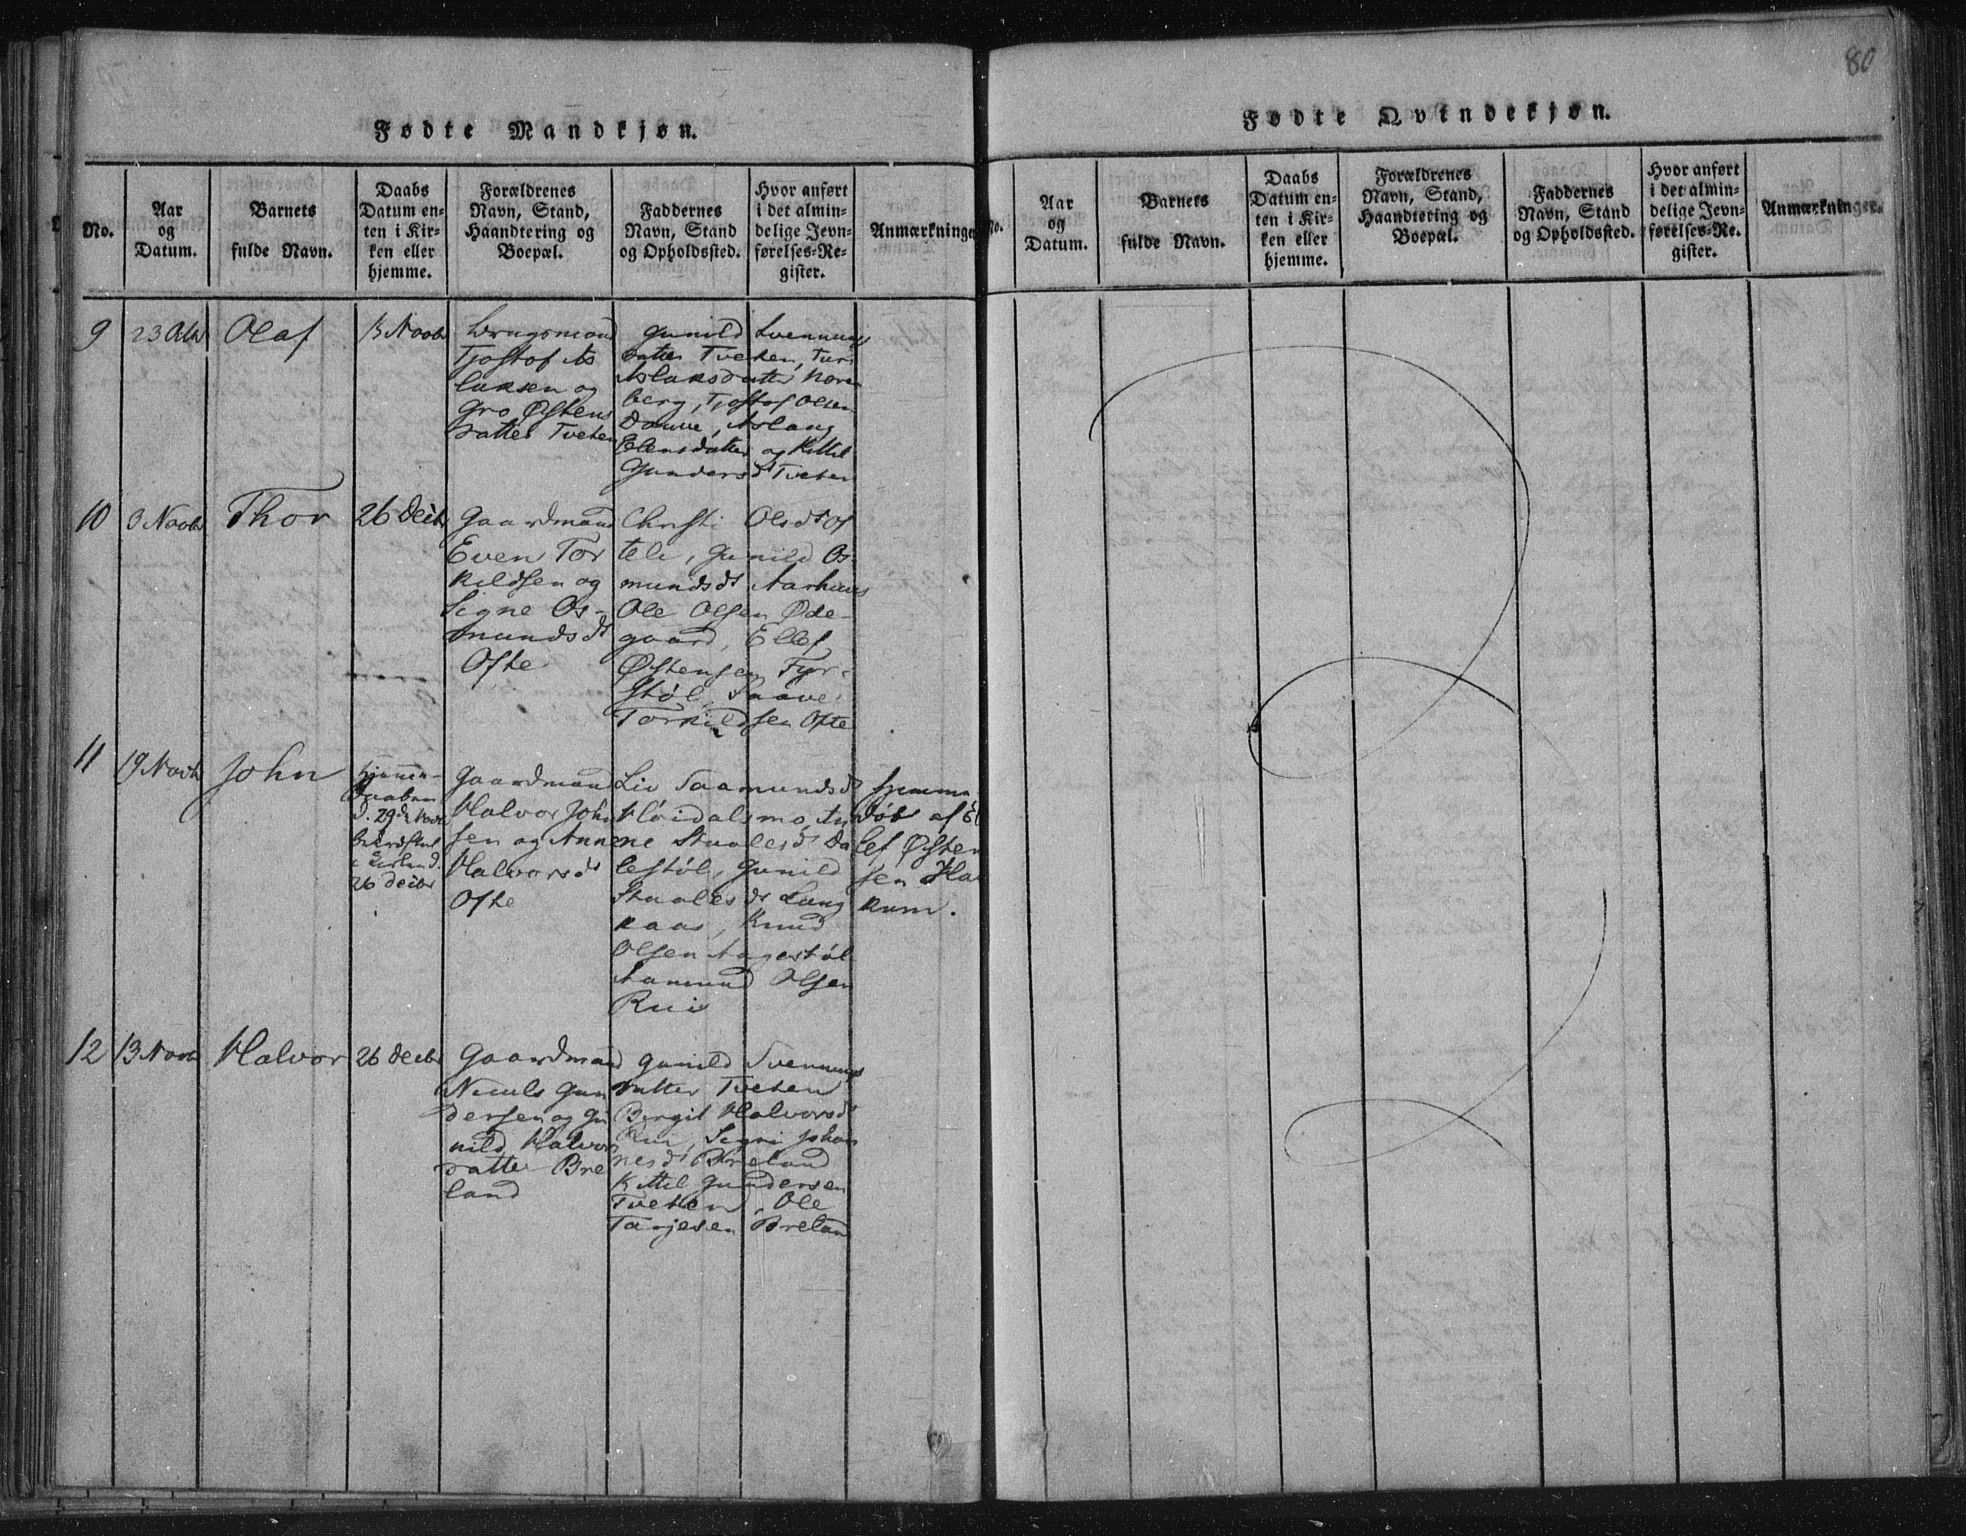 80
Fødte Mandkjøn.
No.
Aar
og
Datum.
Barnets
fulde Navn.
Daabs
Datum en-
ten i Kir-
ken eller
hjemme.
Forældrenes
Navn, Stand,
Haandtering og
Boepæl.
Faddernes
Navn, Stand
og Opholdssted.
Hvor anført
i det almin-
delige Jevn-
førelses-Re-
gister.
Anmærkninger
9
23 Octr
Olaf
Novbr
Tjostof As
laksen og
Gro Østens
datter Tveten
Gunild Svennungs
datter Tveten,
Aslaksdatter Noren
berg, Tjostof Olsen
Aslaug
og Kittil
Gunders Tveten
10
3 Novbr
Thor
26 Decbr
Gaardmand
Even Tor
kildsen og
Signe Os-
mundsdt
Ofte
Christi Olsdt of
teli, Gunild Os
mundsdt Aarhuus
Ole Olsen Øde-
gaard, Ellef
Østensen Fyr-
støl, Saave
Torkildsen Ofte
11
19 Novbr
John
Hjemme-
daaben
d. 29de Novbr
26 Decbr
Gaardmand
Halvor John
sen og Anne
Halvorsdt
Ofte
Liv Saamundsdt
Høidalsmo, An
ne Staalesdt Da
lestøl, Gunild
Staalesdt Lang
kaas, Knud
Olsen
Aamund Olsen
Rui
hjemme
døbt af El
lef Østen
sen Hau
kum.
12
13 Novbr
Halvor
26 Decbr
Gaardmand
Niculs Gun
dersen og Gu
nild Halvors
datter Bre
land
Gunild Svennungs
datter Tveten
Birgit Halvorsdt
Rui, Signi Johan
nesdt Breland
Kittil Gundersen
Tveten, Ole
Tarjesen Breland
Fødte Qvindekjøn.
No.
Aar
og
Datum.
Barnets
fulde Navn.
Daabs
Datum en-
ten i Kir-
ken eller
hjemme.
Forældrenes
Navn, Stand,
Haandtering og
Boepæl.
Faddernes
Navn, Stand
og Opholdssted.
Hvor anført
i det almin-
delige Jevn-
førelses-Re-
gister.
Anmærkninger.